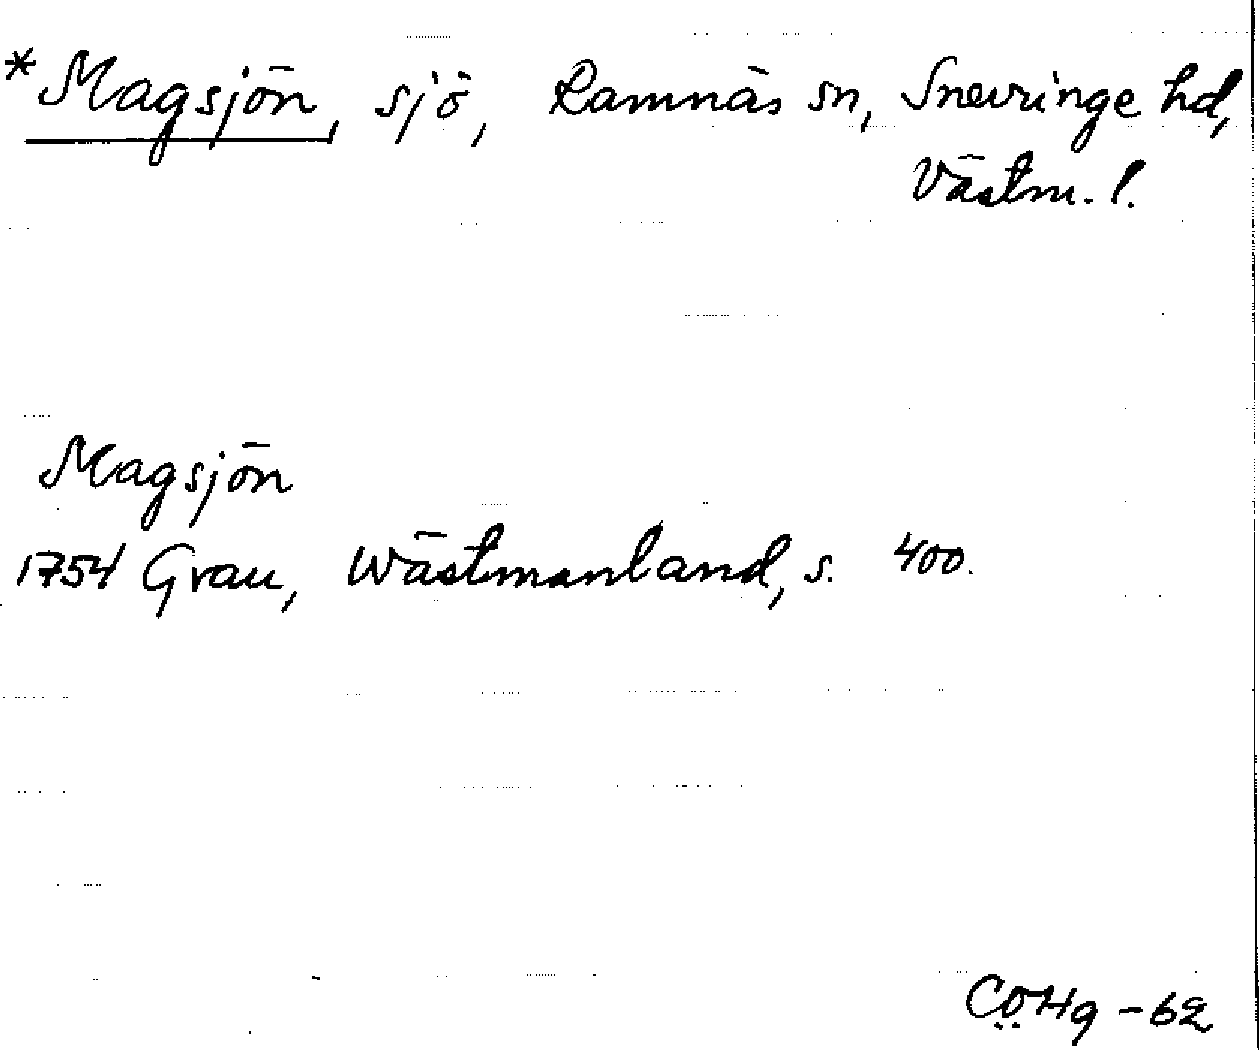 *Magsjön, sjö, Ramnäs sn, Snevringe hd,
Västm. l.
Magsjön
1754 Grau, Wästmanland, s. 400.
CÖHg -62